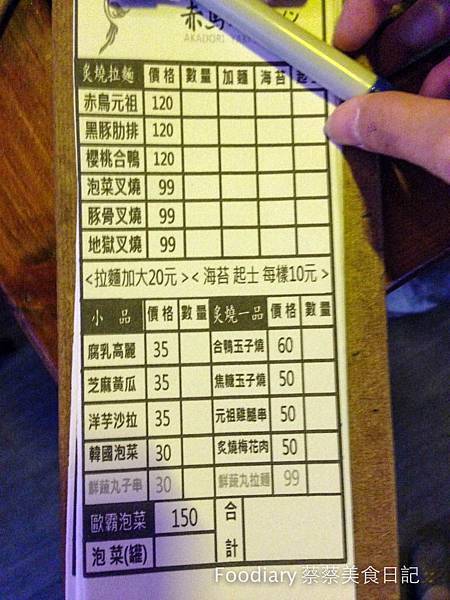 赤鳥
AKADORI
炙燒拉麵 價格 數量 加麵 海苔 起士
赤鳥元祖 120
黑豚肋排 120
櫻桃合鴨 120
泡菜叉燒 99
豚骨叉燒 99
地獄叉燒 99
<拉麵加大20元><海苔 起士 每樣10元>
小品 價格 數量 炙燒一品 價格 數量
腐乳高麗 35 合鴨玉子燒 60
芝麻黃瓜 35 焦糖玉子燒 50
洋芋沙拉 35 元祖雞腿串 50
韓國泡菜 30 炙燒梅花肉 50
鮮蔬丸子串 30 鮮蔬丸拉麵 99
歐霸泡菜 150 合計
泡菜(罐)
Foodiary 蔡蔡美食日記